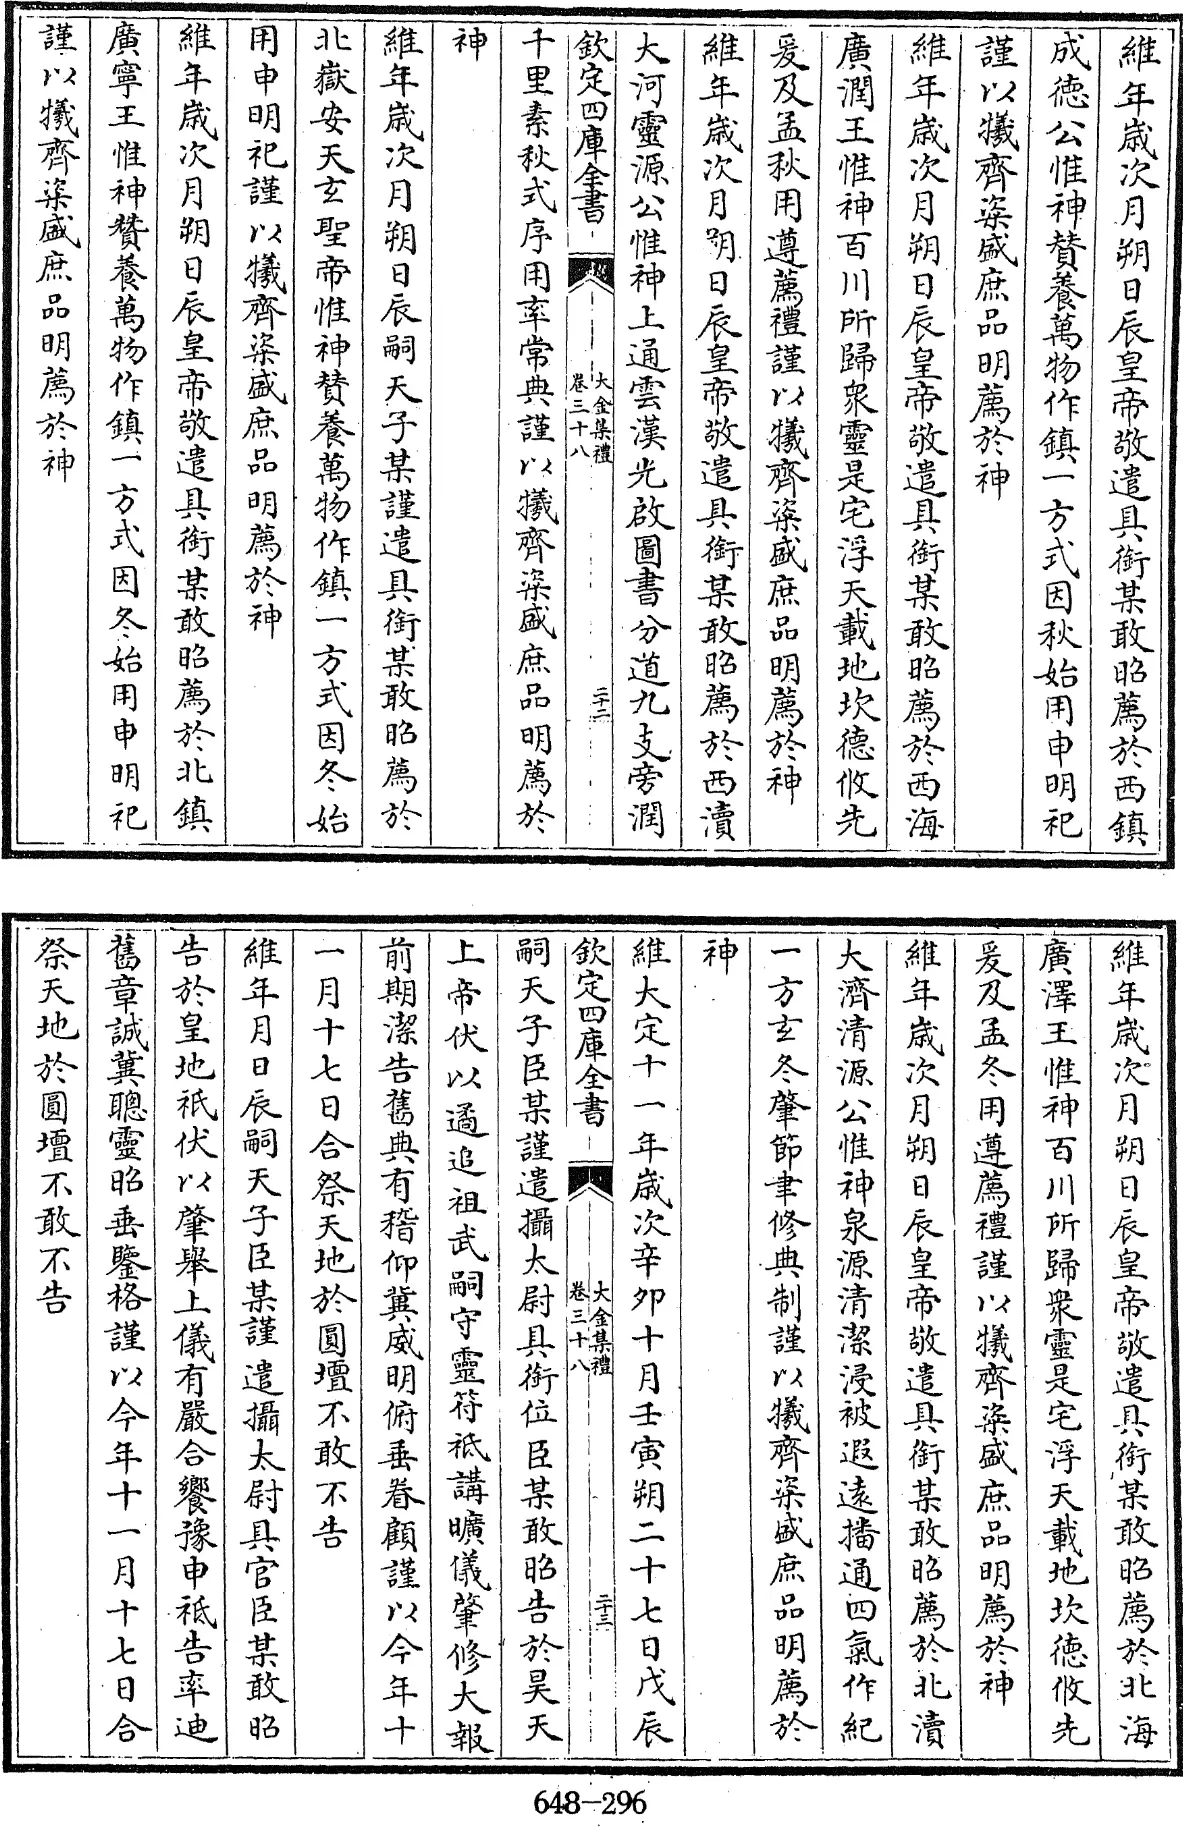 維年歳次月朔日辰皇帝敬遣具銜某敢昭薦於西鎮
成徳公惟神賛養萬物作鎮一方式因秋始用申明祀
謹以犧齊粢盛庶品明薦於神
維年歳次月朔日辰皇帝敬遣具銜某敢昭薦於西海
廣潤王惟神百川所歸衆靈是宅浮天載地坎德攸先
爰及孟秋用遵薦禮謹以犧齊粢盛庶品明薦於神
維年歳次月朔日辰皇帝敬遣具銜某敢昭薦於西瀆
大河靈源公惟神上通雲漢光啟圖書分道九支旁潤
欽定四庫全書
大金集禮
卷三十八
二十二
千里素秋式序用率常典謹以犧齊粢盛庶品明薦於
神
維年歳次月朔日辰嗣天子某謹遣具銜某敢昭薦於
北嶽安天玄聖帝惟神賛養萬物作鎮一方式因冬始
用申明祀謹以犧齊粢盛庶品明薦於神
維年歳次月朔日辰皇帝敬遣具銜某敢昭薦於北鎮
廣寧王惟神賛養萬物作鎮一方式因冬始用申明祀
謹以犧齊粢盛庶品明薦於神
維年歳次月朔日辰皇帝敬遣具銜某敢昭薦於北海
廣澤王惟神百川所歸衆靈是宅浮天載地坎德攸先
爰及孟冬用遵薦禮謹以犧齊粢盛庶品明薦於神
維年歳次月朔日辰皇帝敬遣具銜某敢昭薦於北瀆
大濟清源公惟神泉源清潔浸被遐遠播通四氣作紀
一方玄冬肇節聿修典制謹以犧齊粢盛庶品明薦於
神
維大定十一年歳次辛卯十月壬寅朔二十七日戊辰
欽定四庫全書
大金集禮
卷三十八
二十三
嗣天子臣某謹遣攝太尉具銜位臣某敢昭告於昊天
上帝伏以遹追祖武嗣守靈符祗講曠儀肇修大報
前期潔告舊典有稽仰冀威明俯垂眷顧謹以今年十
一月十七日合祭天地於圓壇不敢不告
維年月日辰嗣天子臣某謹遣攝太尉具官臣某敢昭
告於皇地祇伏以肇舉上儀有嚴合饗豫申祗告率迪
舊章誠冀聰靈昭垂鑒格謹以今年十一月十七日合
祭天地於圓壇不敢不告
648-296